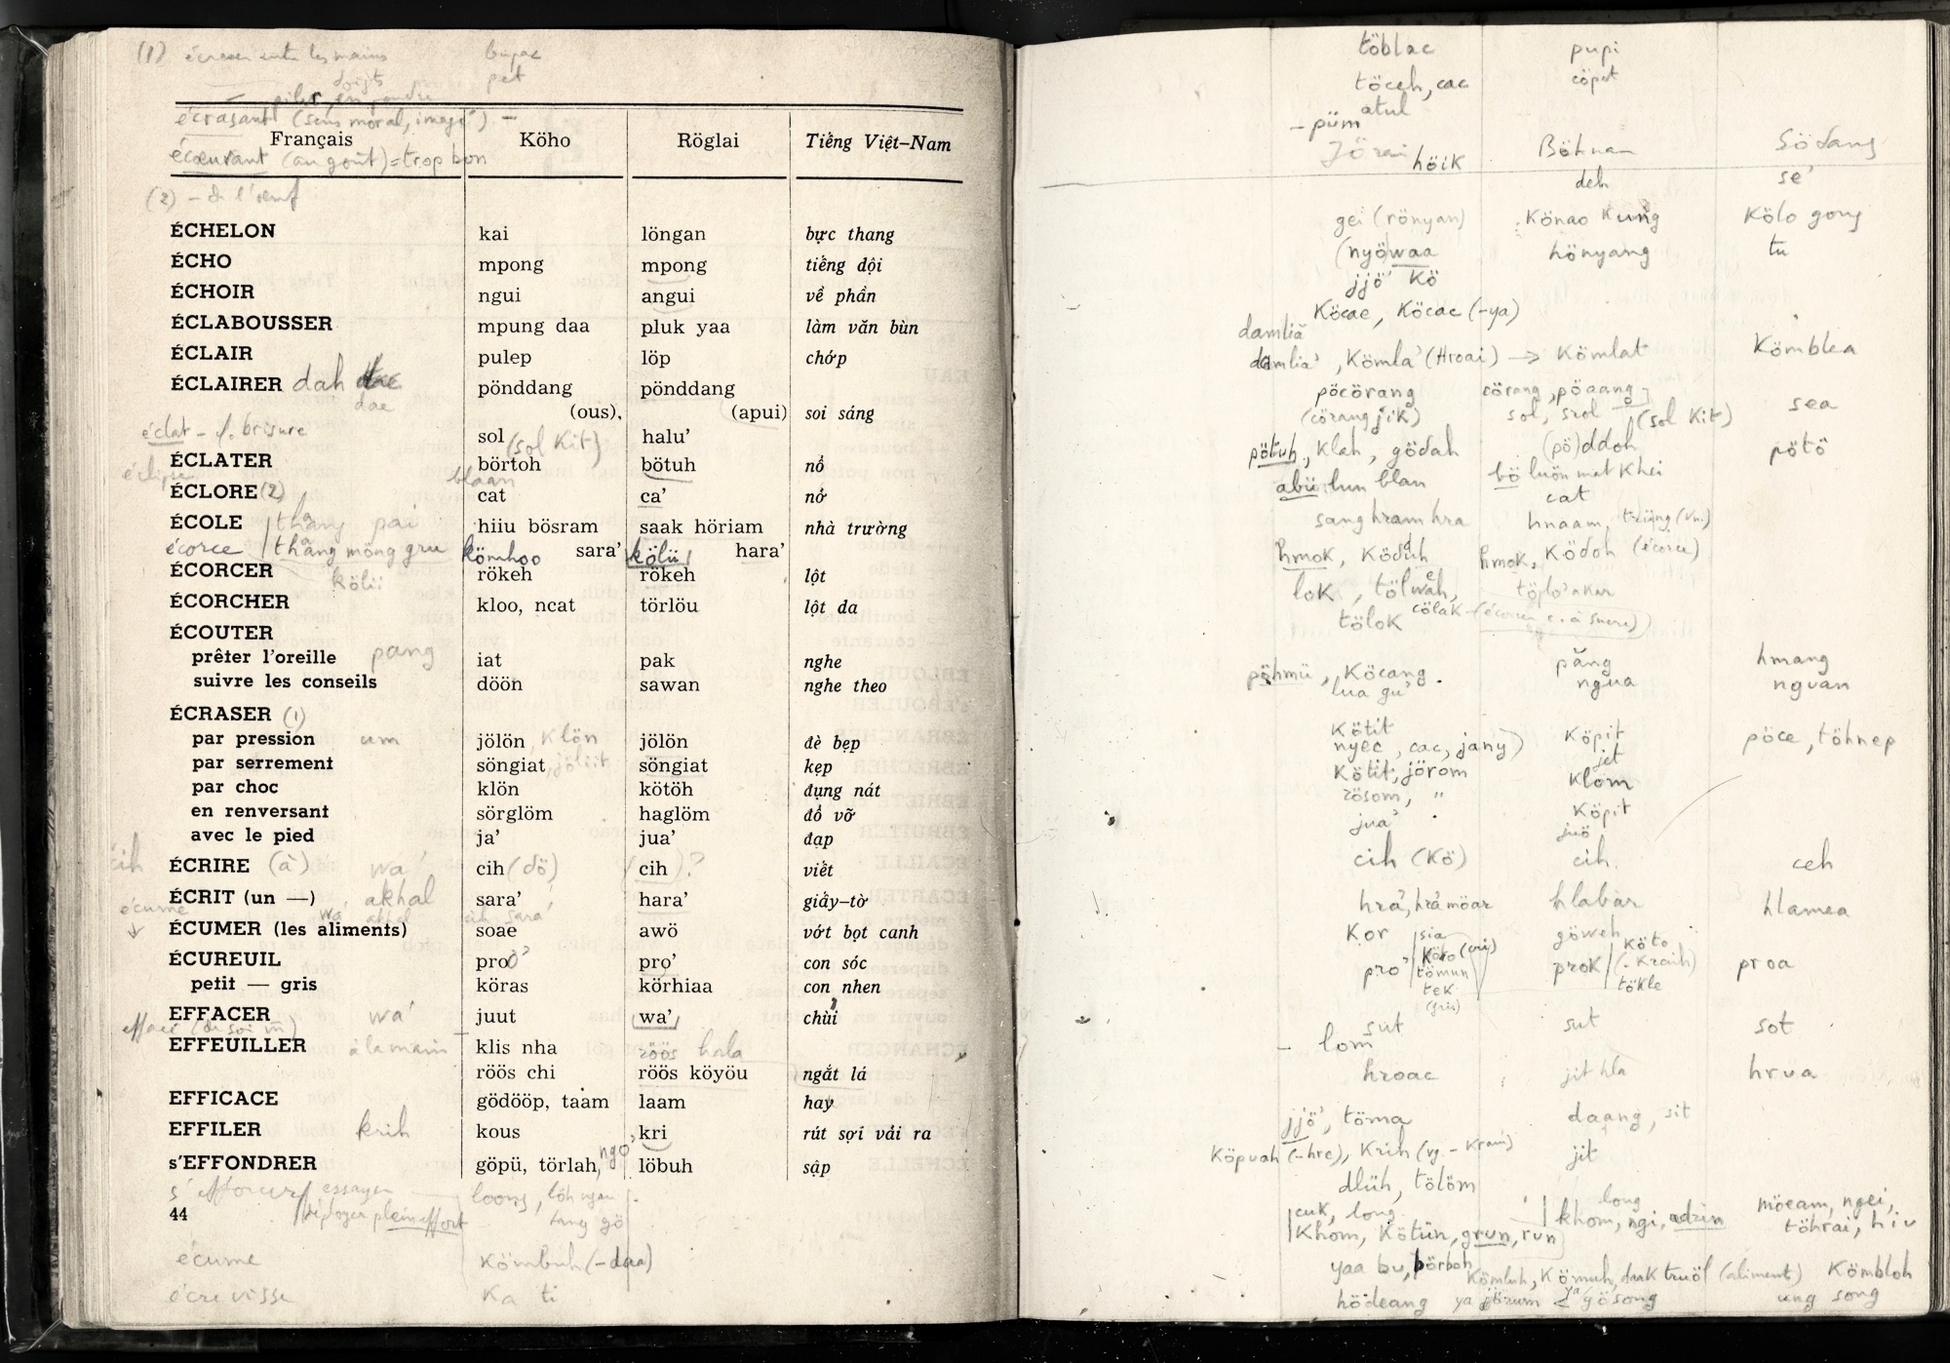 (1) écraser entre les mains bupac
doigts pet
piler, en poudre
écrasant (sens moral, image) –
Français Köho Röglai Tiếng Việt–Nam
écœurant (au goût) = trop bon
(2) – de l'œuf
ÉCHELON kai löngan bực thang
ÉCHO mpong mpong tiếng dội
ÉCHOIR ngui angui về phần
ÉCLABOUSSER mpung daa pluk yaa làm văn bùn
ÉCLAIR pulep löp chớp
ÉCLAIRER dah pönddang pönddang
dae (ous), (apui) soi sáng
éclat – f. brisure sol (sol Kit) halu’
ÉCLATER börtoh bötuh nổ
éclipse blaan
ÉCLORE (2) cat ca’ nở
ÉCOLE thang pai hiiu bösram saak höriam nhà trường
écorce thang möng gru kömhoo sara’ kölii hara’
ÉCORCER kölii rökeh rökeh lột
ÉCORCHER kloo, ncat törlöu lột da
ÉCOUTER
prêter l’oreille pang iat pak nghe
suivre les conseils döön sawan nghe theo
ÉCRASER (1)
par pression um jölön klön jölön đè bẹp
par serrement söngiat, jöliit söngiat kẹp
par choc klön kötöh đụng nát
en renversant sörglöm haglöm đổ vỡ
avec le pied ja’ jua’ đạp
cih ÉCRIRE (à) wa’ cih (dö) cih ? viết
ÉCRIT (un —) akhal sara’ hara’ giấy–tờ
écume wa akhal cih sara’
ÉCUMER (les aliments) soae awö vớt bọt canh
ÉCUREUIL proö’ pro’ con sóc
petit — gris köras körhiaa con nhen
EFFACER wa’ juut wa’ chùi
effacé (de soi m̄)
EFFEUILLER à la main klis nha röös hala
röös chi röös köyöu ngắt lá
EFFICACE gödööp, taam laam hay
EFFILER krih kous kri rút sợi vải ra
s’EFFONDRER göpü, törlah, ngö’ löbuh sập
s'efforcer essayer loong, löh ngan
44 déployer plein effort tang gö
écume Kömbuh (– daa)
écrevisse Ka ti
töblac pupi
töceh, cac cöpet
atul
– püm
Jörai höik Böhnar Södang
deh se’
gei (rönyan) Könao Kung Kölo gong
(nyö) waa hönyang tu
jjö’ Kö
Köcae, Köcac (– ya)
damliă
damlia’, Kömla’ (Hroai) → Kömlat Kömblea
pöcörang cörang, pöaang
(cörang jik) sol, srol (sol Kit) sea
pötuh, Klah, gödah (pö)ddoh pötö
abü lun blan bö luön mat Khei
cat
sang hram hra hnaam, trüöng (vn.)
hmok, Köduh hmok, Ködoh (écorce)
lok, tölweh, töplo’ akar
tölok cölak – (écorcer c. à sucre)
pöhmü, Köcang păng hmang
lua gu’ ngua nguan
Kötit Köpit
nyec, cac, jany) jet pöce, töhnep
Kötit, jörom Klom
rösom, " Köpit
jua’ juö
cih (Kö) cih ceh
hră’, hră’ möar hlabàr hlamea
Kor sia göweh
pro’ Köro (cri) prok Köto proa
tömun (. Kraih)
tek tökle
(gris)
sut sut sot
– lom
hroac jit hla hrua
jjö’, töma daang, sit
Köpuah (– hre), Krih (vg – Krai) jit
dlüh, tölöm
cuk, long long möeam, ngei,
Khom, Kötün, grun, run khom, ngi, adrin töhrai, hiu
yaa bu, börboh Kömluh, Kömuh, daak truöl (aliment) Kömbloh
hödeang ya jörum ya gösong ung song